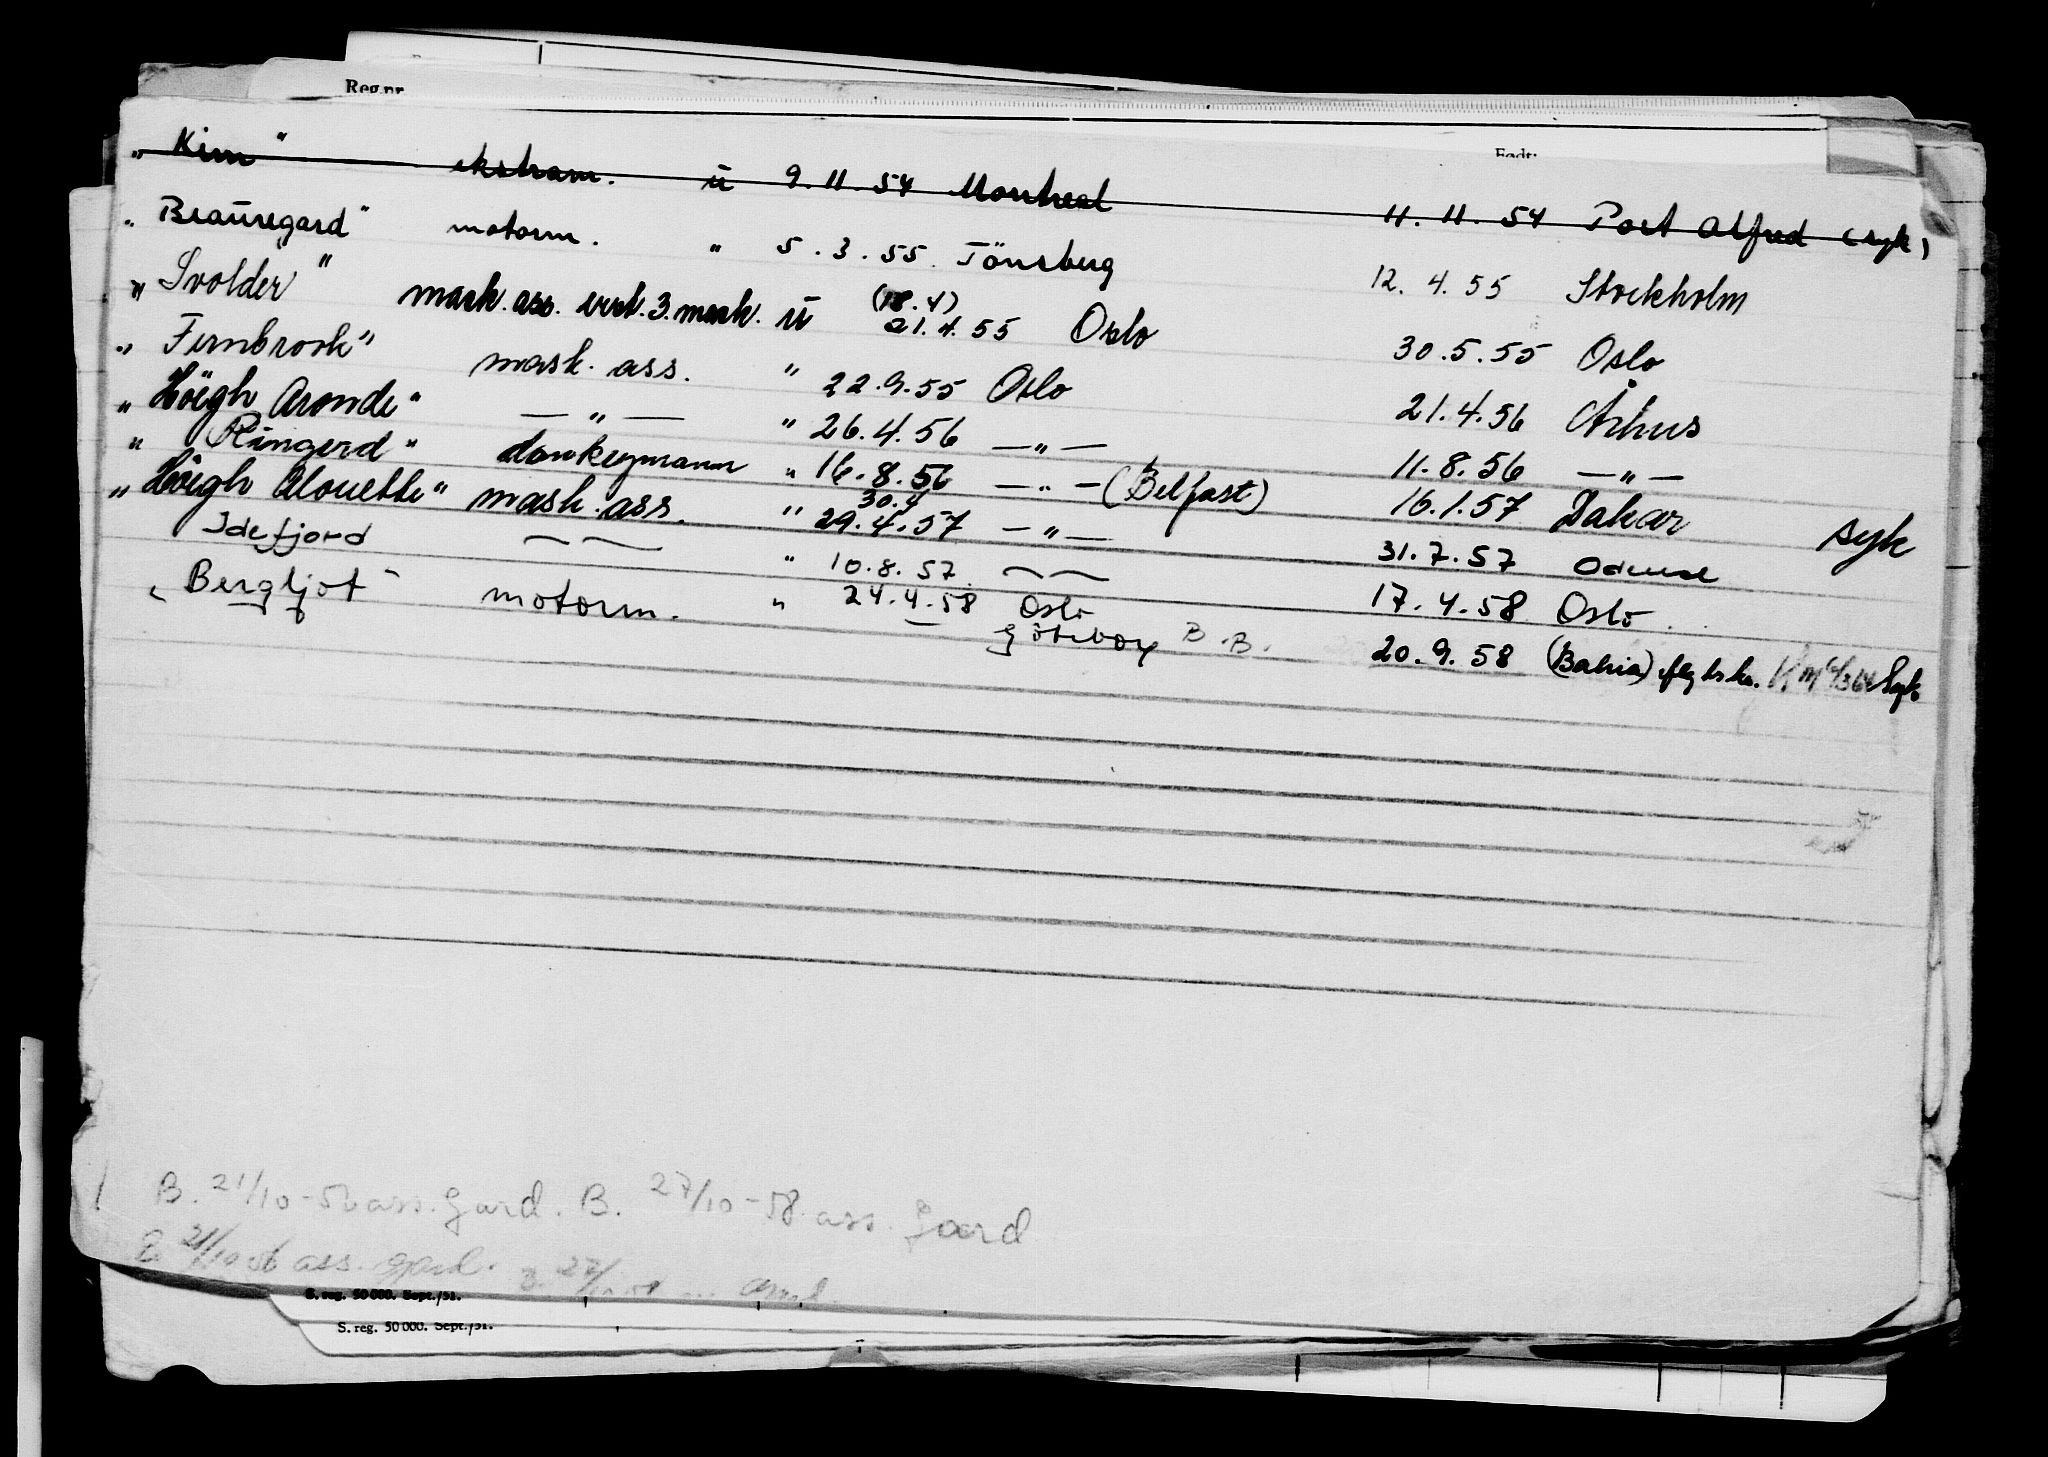 Reg.nr.
Født:
„Kim“ ekstram. ū 9.11.54 Montreal 11.11.54 Port Alfred (syk)
„Beauregard“ motorm. " 5.3.55. Tönsberg 12.4.55 Stockholm
„Svolder“ mask.ass. vik. 3. mask. ū (18.4) 21.4.55 Oslo 30.5.55 Oslo
„Fernbrook“ mask. ass. " 22.9.55 Oslo 21.4.56 Århus
„Höegh Aronde“ — " — " 26.4.56 — " — 11.8.56 — " —
„Ringerd“ donkeymann " 16.8.56 — " — (Belfast) 16.1.57 Dakar syk
„Höegh Alouette“ mask. ass. " 30.4 29.4.57 — " — 31.7.57 Odense
Idefjord — — " 10.8.57. — — 17.4.58 Oslo.
„Bergljot“ motorm. " 24.4.58 Oslo Göteborg B.B. 20.9.58 (Bahia) Syk
B. 21/10-56 ass. Gard. B. 27/10-58 ass. Gard
B 21/10-56 ass. gard.
S. reg. 50 000. Sept./51.
S. reg. 50 000. Sept./51.